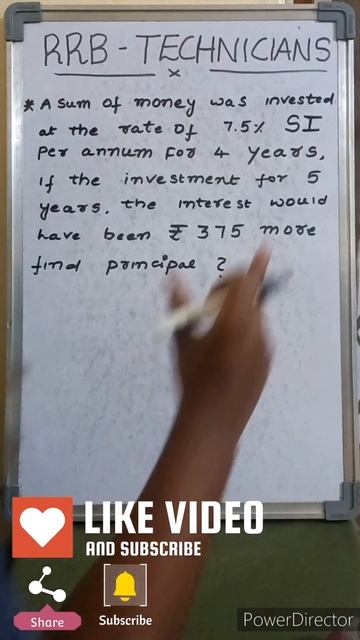 RRB - TECHNICIANS
* A sum of money was invested
at the rate of 7.5% SI
Per annum For 4 years.
If the investment for 5
years. the interest would
have been ₹ 375 more
find principal ?
LIKE VIDEO
AND SUBSCRIBE
Share
Subscribe
PowerDirector